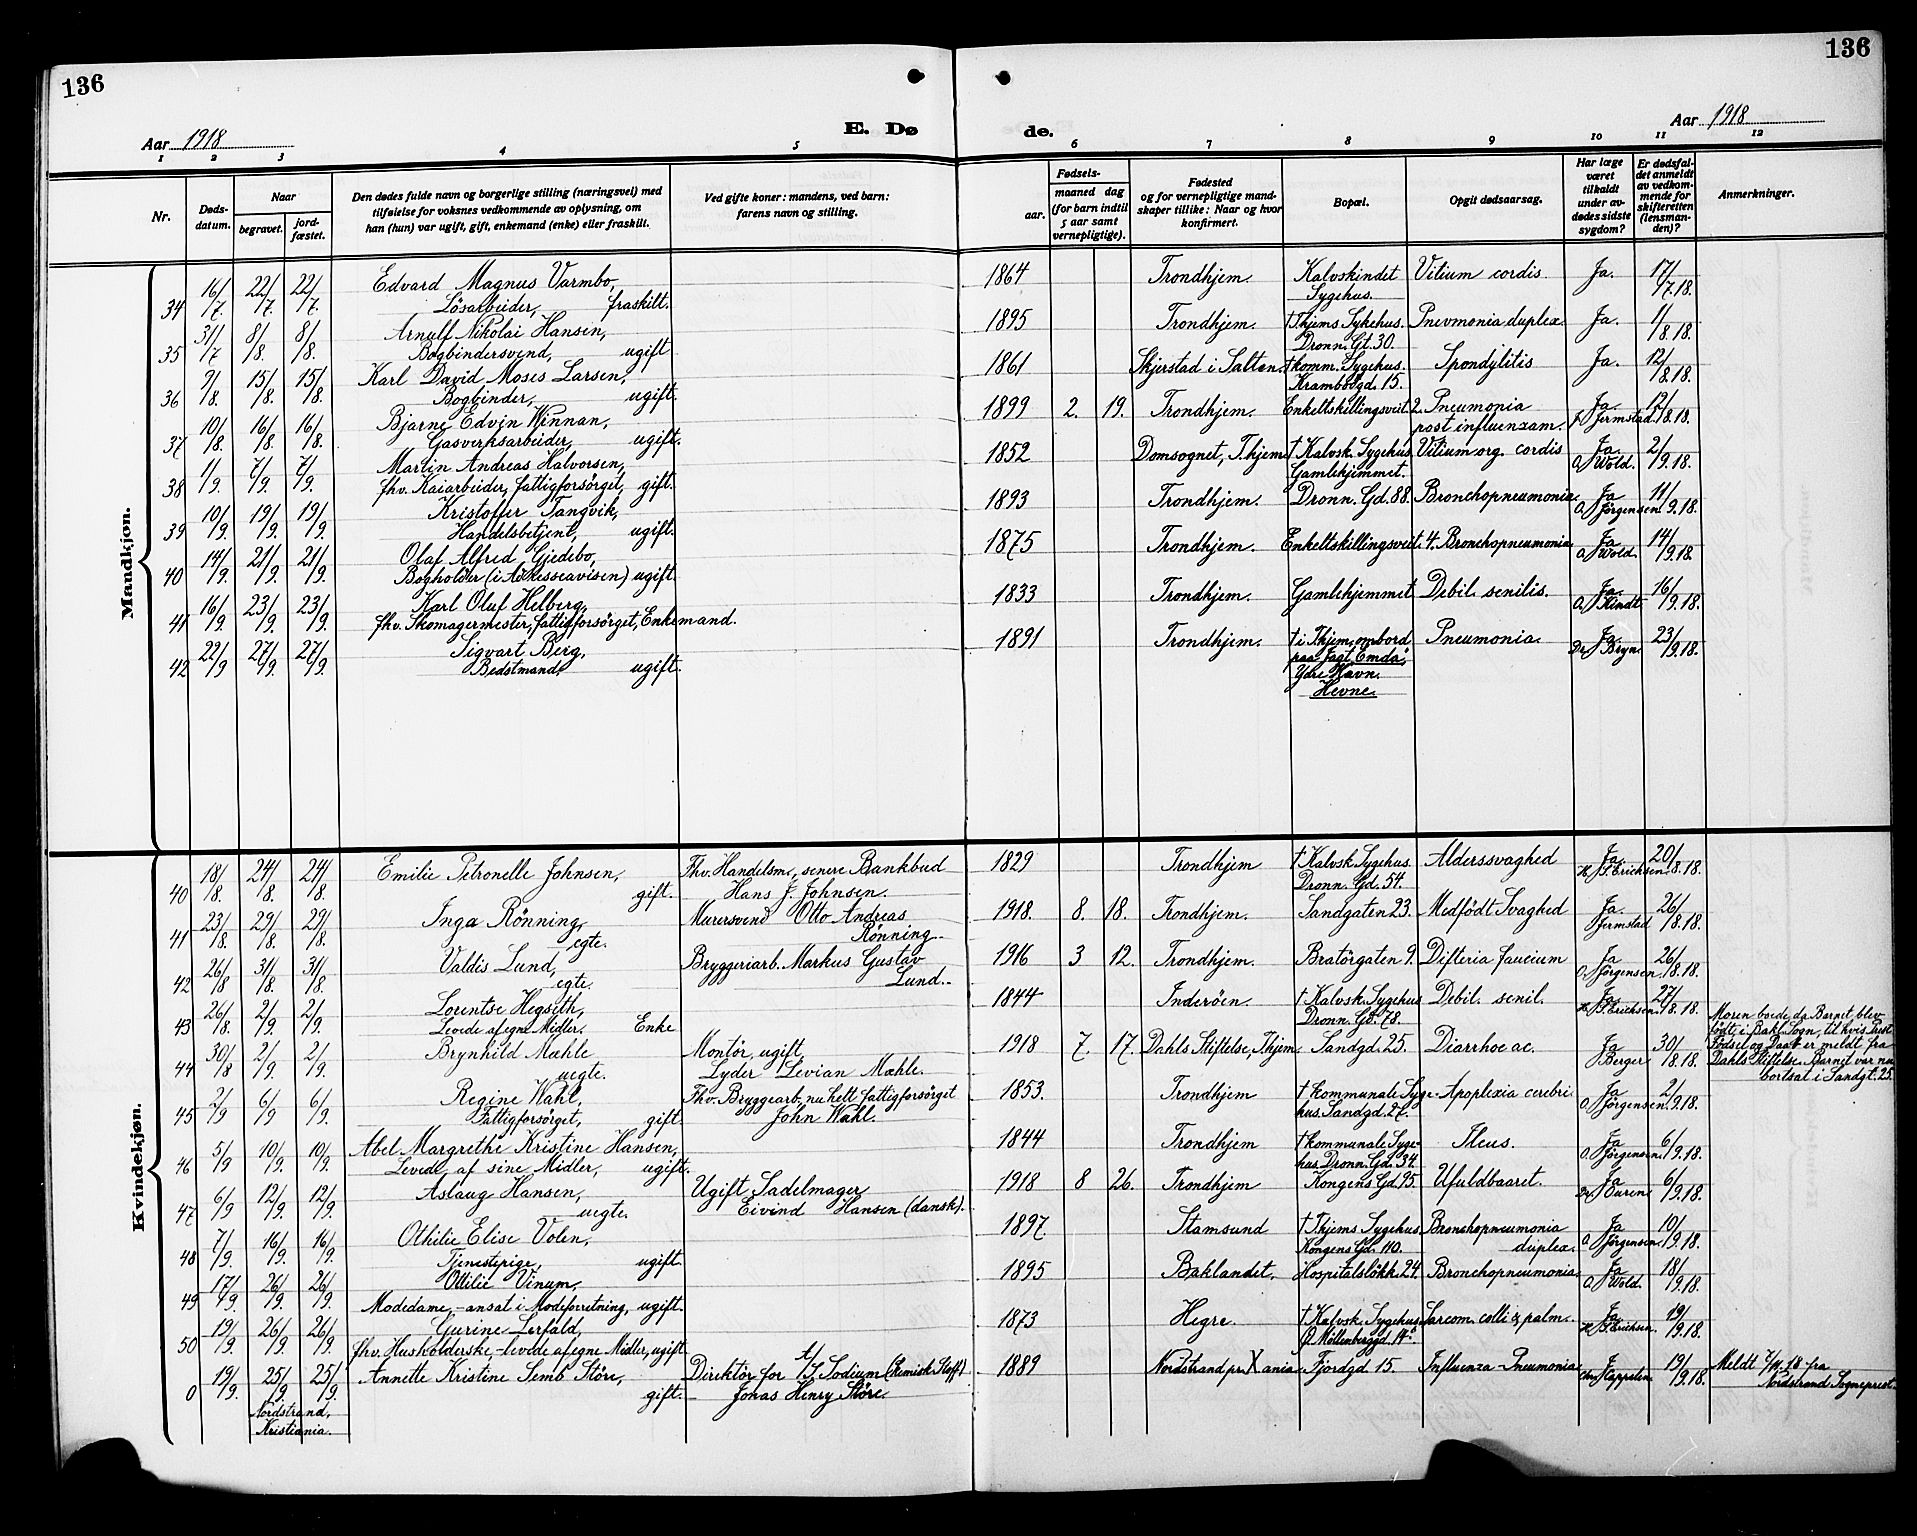 136
136
Aar 1918
E. Dø
de.
Aar 1918
1 2 3 4 5 6 7 8 9 10 11 12
Nr.
Døds-datum.
Naar
begravet.
jord-fæstet.
Den dødes fulde navn og borgerlige stilling (næringsvei) med
tilføielse for voksnes vedkommende av oplysning, om
han (hun) var ugift, gift, enkemand (enke) eller fraskilt.
Ved gifte koner: mandens, ved barn:
farens navn og stilling.
Fødsels-
aar.
maaned dag
(for barn indtil
5 aar samt
vernepligtige).
Fødested
og for vernepligtige mand-
skaper tillike: Naar og hvor
konfirmert.
Bopæl.
Opgit dødsaarsag.
Har læge
været
tilkaldt
under av-
dødes sidste
sygdom?
Er dødsfal-
det anmeldt
av vedkom-
mende for
skifteretten
(lensman-
den)?
Anmerkninger.
Mandkjøn.
34 16/7. 22/7. 22/7. Edvard Magnus Varmbo, Løsarbeider, fraskilt. 1864 Trondhjem. Kalvskindet Sygehus. Vitium cordis Ja. 17/7.18.
35 31/7 8/8. 8/8. Arnulf Nikolai Hansen, Bogbindersvend, ugift 1895 Trondhjem. † Thjems Sykehus. Dronn. Gt. 30. Pnevmonia duplex. Ja. 1/8.18.
36 9/8. 15/8. 15/8. Karl David Moses Larsen, Bogbinder, ugift. 1861 Skjerstad i Salten. † komm. Sygehus. Krambodgd. 15. Spondylitis Ja. 12/8.18.
37 10/8. 16/8. 16/8. Bjarne Edvin Winnan, Gasverksarbeider, ugift. 1899 2. 19. Trondhjem. Enkeltskillingsveit 2. Pneumonia post influenzam. Ja. Jermstad. 12/8.18.
38 1/9. 7/9. 7/9. Martin Andreas Halvorsen, fhv. Kaiarbeider, fattigforsørget, gift. 1852 Domsognet, T.hjem † Kalvsk. Sygehus Gamlehjemmet. Vitium org. cordis Ja. O. Wold. 2/9.18.
39 10/9. 19/9. 19/9. Kristoffer Tangvik, Handelsbetjent, ugift. 1893 Trondhjem. Dronn. Gd. 88. Bronchopneumonia. Ja O. Jørgensen. 11/9.18.
40 14/9. 21/9. 21/9. Olaf Alfred Gjedebo, Bogholder (i Adresseavisen) ugift. 1875 Trondhjem. Enkeltskillingsveit. 4. Bronchopneumonia. Ja O. Wold. 14/9.18.
41 16/9. 23/9. 23/9. Karl Oluf Helberg, fhv. Skomagermester, fattigforsørget, Enkemand. 1833 Trondhjem. Gamlehjemmet Debil. senilis. Ja. O. Kindt 16/9.18.
42 22/9 27/9. 27/9. Sigvart Berg, Bedstmand, ugift. 1891 Trondhjem. † i Thjem, ombord paa Jagt "Emda", Ydre Havn. Hevne. Pneumonia. Ja. Dr. Bryn. 23/9.18.
Kvindekjøn.
40 18/8. 24/8. 24/8. Emilie Petronelle Johnsen, gift. Fhv. Handelsm., senere Bankbud Hans J. Johnsen. 1829 Trondhjem † Kalvsk. Sygehus. Dronn. Gd. 54. Alderssvaghed Ja. H. S. Erichsen. 20/8.18.
41 23/8. 29/8. 29/8. Inga Rønning, egte. Murersvend Otto Andreas Rønning. 1918. 8. 18. Trondhjem. Sandgaten 23. Medfødt Svaghed Ja. Jermstad 26/8.18.
42 26/8 31/8. 31/8. Valdis Lund, egte. Bryggeriarb. Markus Gustav Lund. 1916 3 12. Trondhjem. Bratørgaten 9. Difteria faucium Ja O. Jørgensen. 26/8.18.
43 26/8. 2/9. 2/9. Lorentse Hegseth, Levede af egne Midler. Enke 1844 Inderøen. † Kalvsk. Sygehus Dronn. Gd. 78. Debil. senil. Ja H. S. Erichsen. 27/8.18.
44 30/8 2/9. 2/9. Brynhild Mæhle uegte. Montør, ugift, Lyder Levian Mæhle. 1918 7. 17. Dahls Stiftelse, Thjem. Sandgd. 25. Diarrhoe ac. Ja Berger 30/8.18. Moren boede, da Barnet blev født, i Bakl. Sogn, til hvis Prest Fødsel og Daab er meldt fra Dahls Stiftelse. Barnet var nu bortsat i Sandgt. 25.
45 2/9 6/9. 6/9. Regine Wahl, Fattigforsørget, gift. Fhv. Bryggearb., nu helt fattigforsørget John Wahl. 1853. Trondhjem † kommunale Sygehus. Sandgd. 27. Apoplexia cerebri. Ja O. Jørgensen. 2/9.18.
46 5/9 10/9. 10/9. Abel Margrethe Kristine Hansen, Levede, af sine Midler, ugift. 1844 Trondhjem † kommunale Sygehus Dronn. Gd. 34. Ileus. Ja O. Jørgensen. 6/9.18.
47 6/9 12/9. 12/9. Aslaug Hansen, uegte. Ugift Sadelmager Eivind Hansen (dansk). 1918 8 26. Trondhjem Kongens Gd. 95. Ufuldbaaret. Ja 6/9.18.
48 7/9. 16/9. 16/9. Othilie Elise Volen, Tjenestepige, ugift. 1897 Stamsund † Thjems Sygehus. Kongens Gd. 110. Bronchopneumonia duplex. Ja O. Jørgensen. 10/9.18.
49 17/9. 26/9. 26/9. Ottilie Vinum, Modedame, - ansat i Modeforretning, ugift. 1895 Baklandet. Hospitalsløkk. 24. Bronchopneumonia. Ja O. Wold. 18/9.18.
50 19/9. 26/9. 26/9. Gurine Lerfald, fhv. Husholderske - levede af egne Midler, ugift. 1873 Hegre. † Kalvsk. Sygehus. Ø. Møllenberggd. 14. Sarcom. colli & palm. Ja H. S. Erichsen. 19/9.18.
0 19/9. 25/9 25/9. Nordstrand, Kristiania. Annette Kristine Semb Støre, gift. Direktør for A/S Sodium (Kemisk Stoff) Jonas Henry Støre 1889 Nordstrand pr. Xania. Fjordgd. 15. Influenza-Pneumonia. J. Chr. Kappelen. 19/9.18. Meldt 7/11.18 fra Nordstrand Sogneprest.